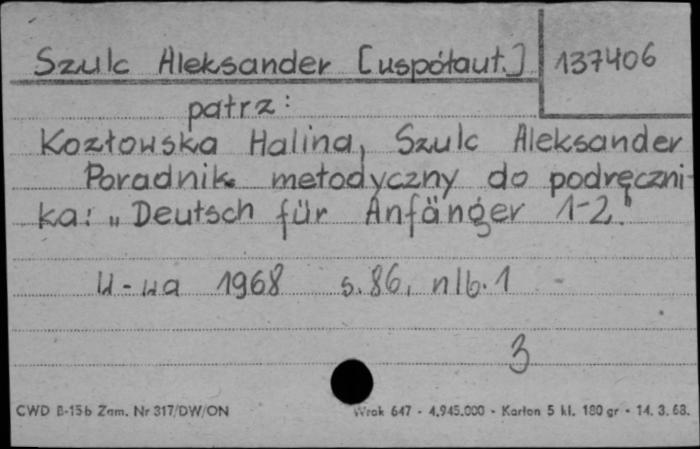 Szulc Aleksander [współaut.] 137406
patrz:
Kozłowska Halina, Szulc Aleksander
Poradnik metodyczny do podręczni-
ka: „Deutsch für Anfänger 1-2."
W-wa 1968 s. 86, nlb. 1
3
CWD B-15b Zam. Nr 317/DW/ON Wrok 647 - 4.945.000 - Karton 5 kl. 180 gr - 14. 3. 68.